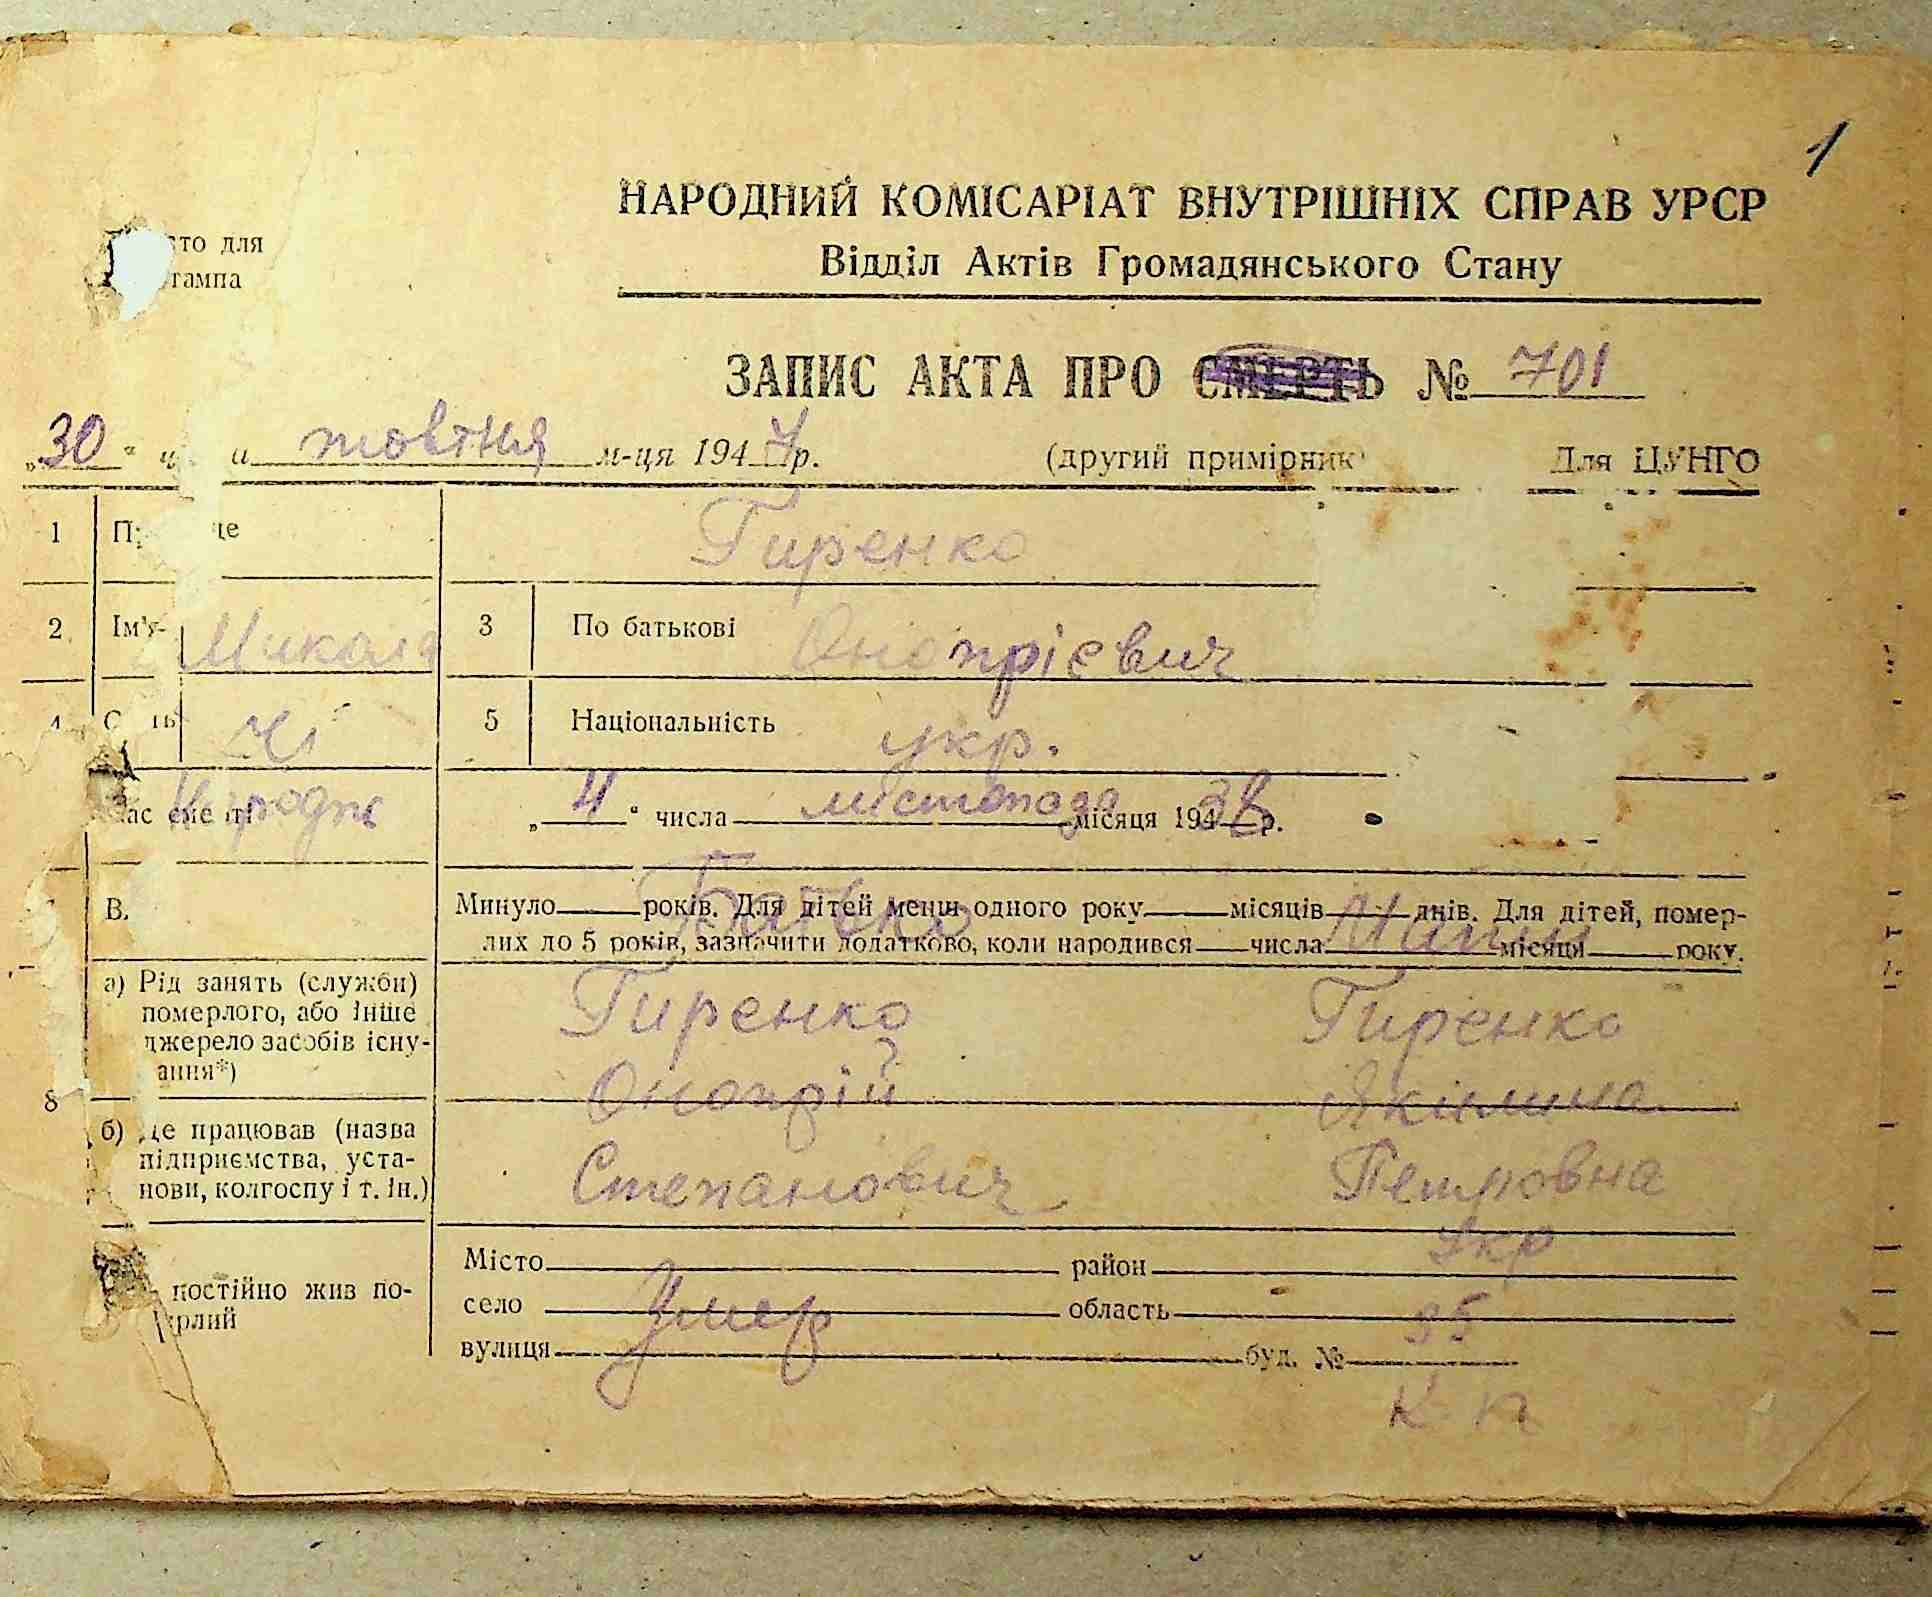 1
НАРОДНИЙ КОМІСАРІАТ ВНУТРІШНІХ СПРАВ УРСР
сто для
тампа
Відділ Актів Громадянського Стану
ЗАПИС АКТА ПРО СМЕРТЬ № 701
„30“ жовтня м-ця 1947 р. (другий примірник) Для ЦУНГО
1 Гиренко
2 Ім'я Микола 3 По батькові Онопрієвич
4 чі 5 Національність укр.
„4“ числа листопада місяця 1938 р.
В. Минуло років. Для дітей менш одного року місяців днів. Для дітей, помер-
лих до 5 років, зазначити додатково, коли народився числа місяця року.
Батько
а) Рід занять (служби)
померлого, або інше
джерело засобів існу-
ання*)
Гиренко Гиренко
Онопрій Якилина
8
б) Де працював (назва
підприємства, уста-
нови, колгоспу і т. ін.)
Степанович Петровна
укр
постійно жив по-
рлий
Місто район
село Умер область 35
вулиця буд. №
к. п